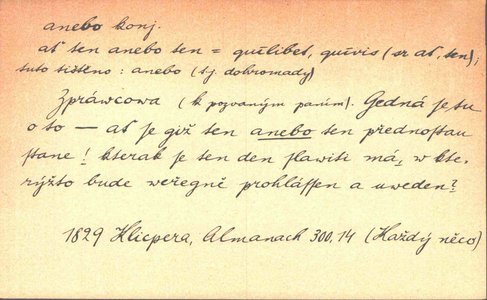 anebo konj.
ať ten anebo ten = quilibet, quivis (sr ať, ten);
tuto tištěno: anebo (tj dobromady)
Zpráwcowa (k pozvaným pánům). Gedná se tu
o to — ať je giž ten anebo ten přednostau
stane! kterak se ten den slawiti má, w kte-
rýžto bude weřegně prohlášsen a uweden?
1829 Klicpera, Almanach 300, 14 (Každý něco)